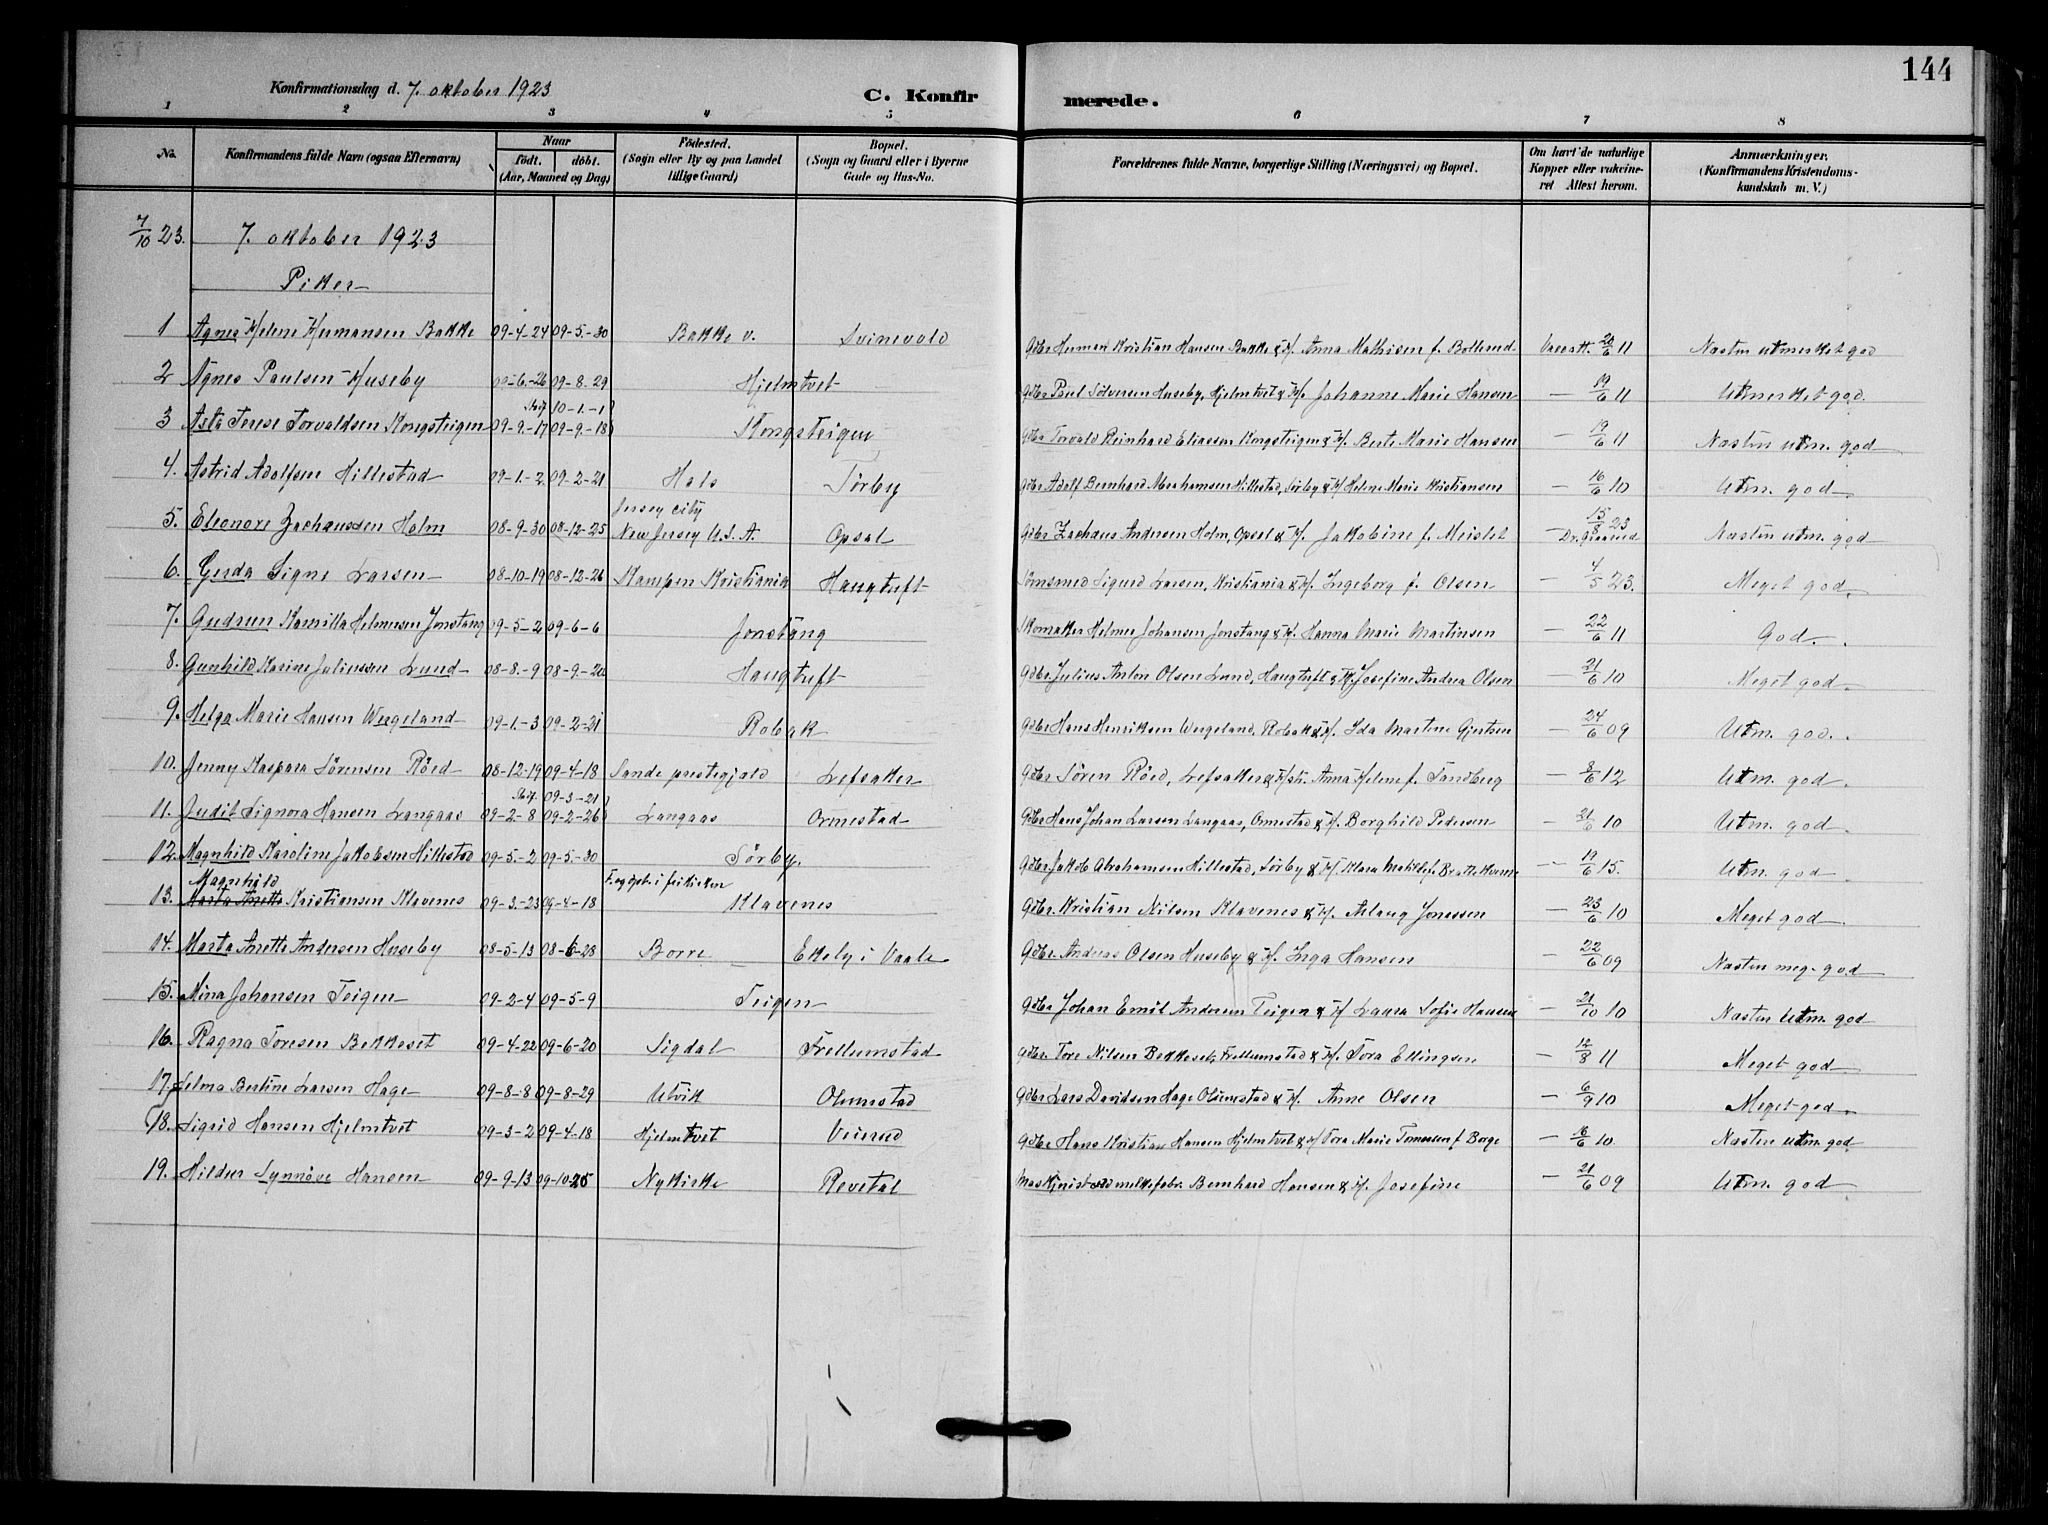 144
Konfirmationsdag d. 7. oktober 1923
C. Konfirmerede.
1 2 3 4 5 6 7 8
No.
Konfirmandens fulde Navn (ogsaa Efternavn)
Naar
født. døbt.
(Aar, Maaned og Dag)
Fødested.
(Sogn eller By og paa Landet
tillige Gaard)
Bopæl.
(Sogn og Gaard eller i Byerne
Gade og Hus-No.
Forældrenes fulde Navne, borgerlige Stilling (Næringsvei) og Bopæl.
Om havt de naturlige
Kopper eller vakcine-
ret Attest herom.
Anmærkninger.
(Konfirmandens Kristendoms-
kundskab m. V.)
7/10 23. 7. oktober 1923
Piker
1 Agnes Helene Hermansen Bakke 09-4-24 09-5-30 Bakke v. Svinevold Gdbr Herman Kristian Hansen Bakke & H. Anna Mathisen f. Bollerud Vacatt. 20/6 11 Næsten utmerket god
2 Agnes Paulsen Huseby 09-6-26 09-8-29 Hjelmtvet Gdbr Paul Sölversen Huseby, Hjelmtvet & H. Johanne Marie Hansen — 19/6 11 Utmerket god.
Stf. 10-1-1
3 Asta Terese Torvaldsen Kongsteigen 09-9-17 09-9-18 Kongsteigen Gdbr Torvald Reinhard Eliassen Kongsteigen & H. Berte Marie Hansen — 19/6 11 Næsten utm. god
4. Astrid Adolfsen Hillestad 09-1-2 09-2-21 Hals Sørby Gdbr Adolf Bernhard Abrahamsen Hillestad, Sørby & H Helene Marie Kristiansen — 16/6 10 Utm. god
Jersey city
5. Eleonore Zachaussen Holm 08-9-30 08-12-25 New Jersey U.S.A. Opsal Gdbr Zachaus Andersen Holm, Opsal & H. Jakobine f. Meislet — 15/8 23 Næsten utm. god
6. Gerda Signe Larsen 08-10-19 08-12-26 Kampen Kristiania Haugtuft Smsmed Sigurd Larsen, Kristiania & H. Ingeborg f. Olsen — 4/5 23. Meget god.
7. Gudrun Kamilla Helmersen Jonstang 09-5-2 09-6-6 Jonstang Skomaker Helmer Johansen Jonstang & H. Hanna Marie Martinsen — 22/6 11 God.
8. Gunhild Karine Juliussen Lund 08-8-9 08-9-20 Haugtuft Gdbr Julius Anton Olsen Lund, Haugtuft & H. Josefine Andrea Olsen — 21/6 10 Meget god.
9. Helga Marie Hansen Wergeland 09-1-3 09-2-21 Robak Gdbr Hans Henriksen Wergeland, Robak & H. Ida Martine Gjertsen — 24/6 09 Utm. god.
10. Jenny Kaspara Sørensen Röed 08-12-19 09-4-18 Sande prestegjeld Lefsaker Gdbr Søren Röed, Lefsaker & H. Anna Helene f. Sandberg — 8/6 12 Utm. god.
Stf. 09-3-21
11. Judit Signora Hansen Langaas 09-2-8 09-2-26 Langaas Ormestad Gdbr Hans Johan Larsen Langaas, Ormestad & H. Borghild Pedersen — 21/6 10 Utm. god.
12. Magnhild Karoline Jakobsen Hillestad 09-5-2 09-5-30 Sørby. Gdbr Jakob Abrahamsen Hillestad, Sørby & H. Klara Matilde f. Brattekverne — 19/6 15. Utm. god.
Magnhild F. og döbt i frikirken
13. Marta Anette Kristiansen Klavenes 09-3-23 09-4-18 Klavenes Gdbr. Kristian Nilsen Klavenes & H. Aslaug Jonassen — 23/6 10 Meget god
14. Marta Anette Andersen Huseby 08-5-13 08-6-28 Borre Ekely i Vaale Gdbr. Andreas Olsen Huseby & H. Inga Hansen — 22/6 09 Næsten meg. god
15. Mina Johansen Teigen 09-2-4 09-5-9 Teigen Gdbr Johan Emil Andersen Teigen & H Laura Sofie Hansen — 21/10 10 Næsten utm. god
16. Ragna Toresen Bekkeset 09-4-22 09-6-20 Sigdal Frellumstad Gdbr. Tore Nilsen Bekkeset, Frellumstad & H. Tora Ellingsen — 12/8 11 Meget god
17. Selma Bertine Larsen Hage 09-8-8 09-8-29 Ulvik Olumstad Gdbr Lars Davidsen Hage Olumstad & H. Anne Olsen — 6/9 10 Meget god.
18. Sigrid Hansen Hjelmtvet 09-3-2 09-4-18 Hjelmtvet Veierud Gdbr. Hans Kristian Hansen Hjelmtvet & H Tora Marie Tomessen f. Borge — 16/6 10 Næsten utm. god
19. Hildur Synnöve Hansen 09-9-13 09-10-25 Nykirke Revetal Maskinist ved melkefabr. Bernhard Hansen & H. Josefine — 21/6 09 Utm. god